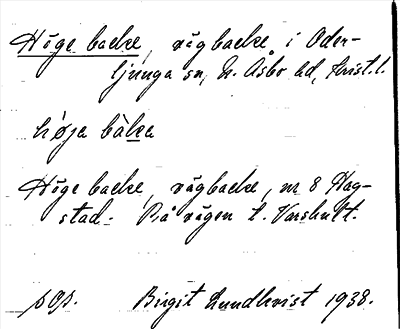 Höge backe, vägbacke i Oder-
ljunga sn, N. Åsbo hd, Krist. l.
høja bàka
Höge backe, vägbacke, nr 8 Hag-
stad. På vägen t. Varshult.
pop. Birgit Lundkvist 1938.